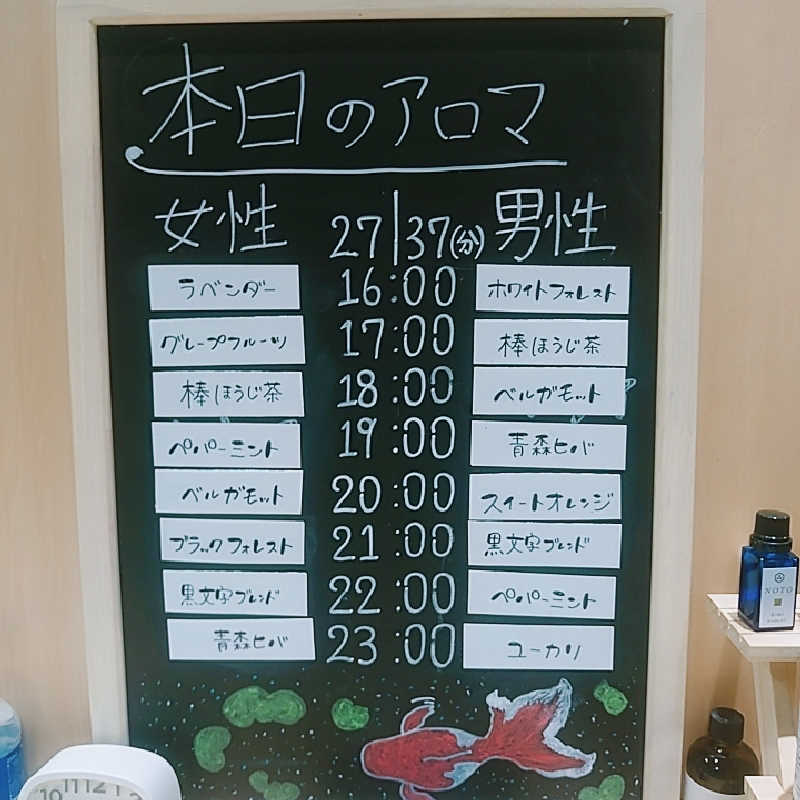 本日のアロマ
女性 27|37(分) 男性
ラベンダー 16:00 ホワイトフォレスト
グレープフルーツ 17:00 棒ほうじ茶
棒ほうじ茶 18:00 ベルガモット
ペパーミント 19:00 青森ヒバ
ベルガモット 20:00 スイートオレンジ
ブラックフォレスト 21:00 黒文字ブレンド
黒文字ブレンド 22:00 ペパーミント
青森ヒバ 23:00 ユーカリ
NOTO
10 11 12 1